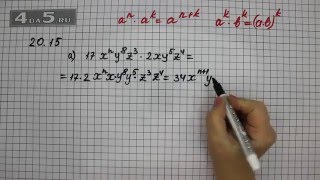 4ua5.ru
aⁿ · aᵏ = aⁿ⁺ᵏ  aᵏ · bᵏ = (a·b)ᵏ
20.15
а) 17 xⁿ y⁸ z³ · 2x y⁵ z⁴ =
= 17·2 xⁿ x · y⁸ y⁵ · z³ z⁴ = 34 xⁿ⁺¹ y